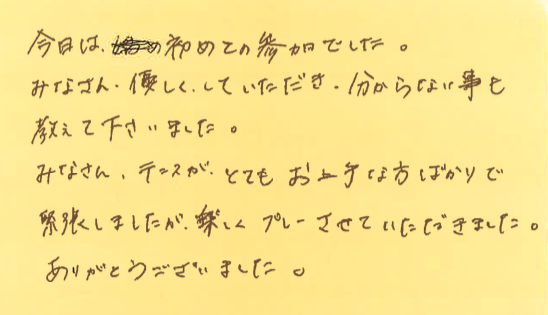 今日は、初めての参加でした。
みなさん、優しくしていただき、分からない事も
教えて下さいました。
みなさん、テニスが、とてもお上手な方ばかりで
緊張しましたが、楽しくプレーさせていただきました。
ありがとうございました。